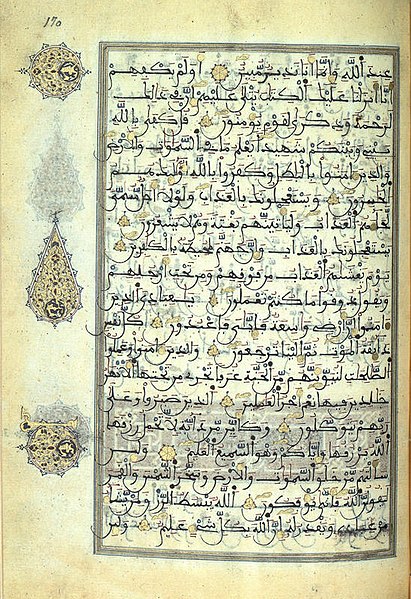 170
عند الله وانما انا نذير مبين اولم يكفهم
انا انزلنا عليك الكتب يتلى عليهم ان في ذلك
لرحمة وذكرى لقوم يومنون قل كفى بالله
بيني وبينكم شهيدا يعلم ما في السموات والارض
والذين امنوا بالباطل وكفروا بالله اولئك هم
الخسرون ويستعجلونك بالعذاب ولولا اجل مسمى
لجاءهم العذاب ولياتينهم بغتة وهم لا يشعرون
يستعجلونك بالعذاب وان جهنم لمحيطة بالكفرين
يوم يغشيهم العذاب من فوقهم ومن تحت ارجلهم
ويقول ذوقوا ما كنتم تعملون يعبادي الذين
ءامنوا ان ارضي واسعة فاياي فاعبدون كل نفس
ذايقة الموت ثم الينا ترجعون والذين امنوا وعملوا
الصلحت لنبوينهم من الجنة غرفا تجري من تحتها الانهر
خلدين فيها نعم اجر العملين الذين صبروا وعلى
ربهم يتوكلون وكاين من دابة لا تحمل رزقها
الله يرزقها واياكم وهو السميع العليم ولين
سالتهم من خلق السموات والارض وسخر الشمس والقمر
ليقولن الله فانى يوفكون الله يبسط الرزق لمن يشاء
من عباده ويقدر له ان الله بكل شيء عليم ولين